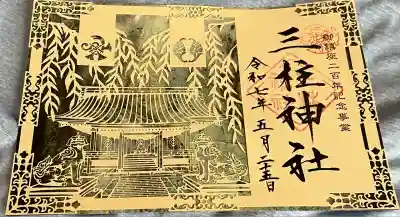 御鎮座二百年記念事業
三柱神社
令和七年五月二十五日